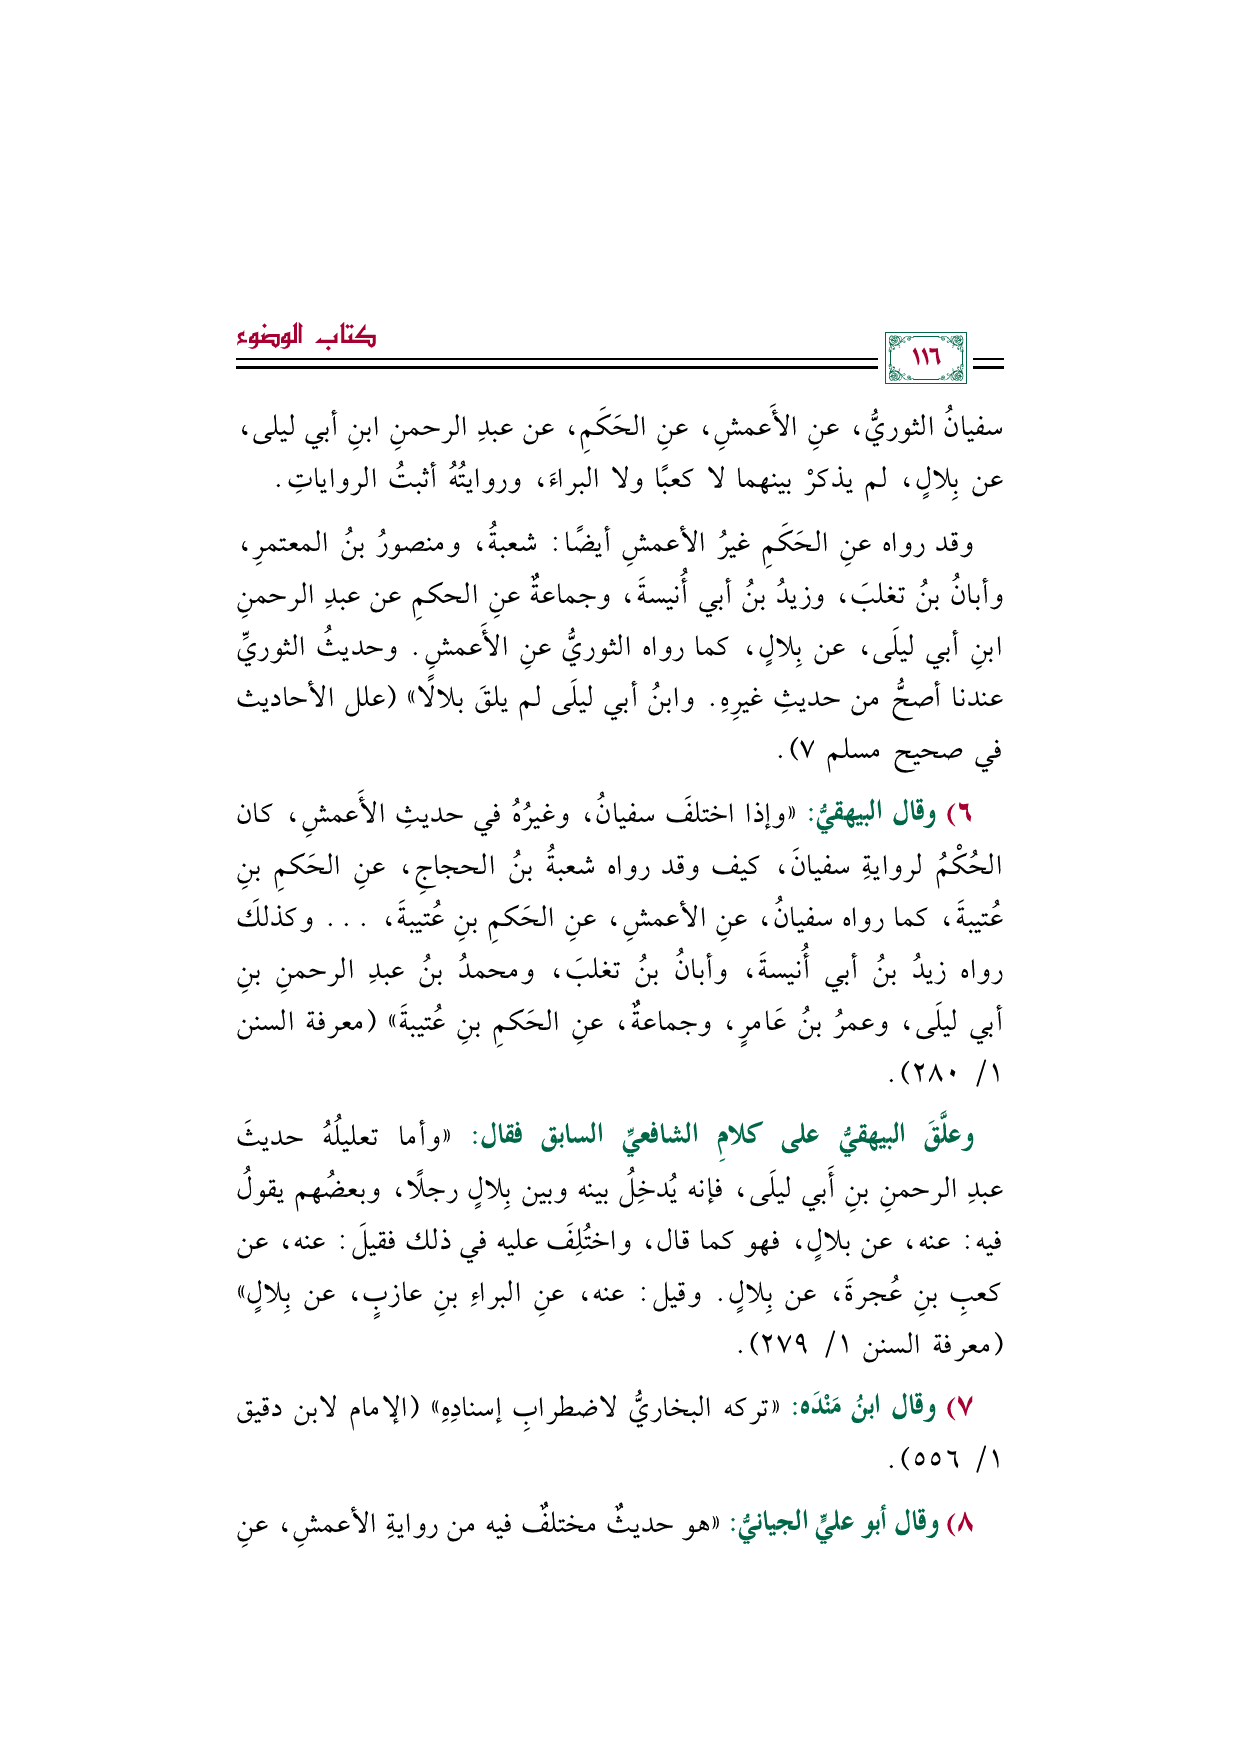 كتاب الوضوء
١١٦
سفيانُ الثوريُّ، عنِ الأَعمشِ، عنِ الحَكَمِ، عن عبدِ الرحمنِ ابنِ أبي ليلى،
عن بِلالٍ، لم يذكرْ بينهما لا كعبًا ولا البراءَ، وروايتُهُ أثبتُ الرواياتِ.
وقد رواه عنِ الحَكَمِ غيرُ الأعمشِ أيضًا: شعبةُ، ومنصورُ بنُ المعتمرِ،
وأبانُ بنُ تغلبَ، وزيدُ بنُ أبي أُنيسةَ، وجماعةٌ عنِ الحكمِ عن عبدِ الرحمنِ
ابنِ أبي ليلَى، عن بِلالٍ، كما رواه الثوريُّ عنِ الأَعمشِ. وحديثُ الثوريِّ
عندنا أصحُّ من حديثِ غيرِهِ. وابنُ أبي ليلَى لم يلقَ بلالًا» (علل الأحاديث
في صحيح مسلم ٧).
٦) وقال البيهقيُّ: «وإذا اختلفَ سفيانُ، وغيرُهُ في حديثِ الأَعمشِ، كان
الحُكْمُ لروايةِ سفيانَ، كيف وقد رواه شعبةُ بنُ الحجاجِ، عنِ الحَكمِ بنِ
عُتيبةَ، كما رواه سفيانُ، عنِ الأعمشِ، عنِ الحَكمِ بنِ عُتيبةَ، ... وكذلكَ
رواه زيدُ بنُ أبي أُنيسةَ، وأبانُ بنُ تغلبَ، ومحمدُ بنُ عبدِ الرحمنِ بنِ
أبي ليلَى، وعمرُ بنُ عَامرٍ، وجماعةٌ، عنِ الحَكمِ بنِ عُتيبةَ» (معرفة السنن
١/ ٢٨٠).
وعلَّقَ البيهقيُّ على كلامِ الشافعيِّ السابق فقال: «وأما تعليلُهُ حديثَ
عبدِ الرحمنِ بنِ أَبي ليلَى، فإنه يُدخِلُ بينه وبين بِلالٍ رجلًا، وبعضُهم يقولُ
فيه: عنه، عن بلالٍ، فهو كما قال، واختُلِفَ عليه في ذلك فقيلَ: عنه، عن
كعبِ بنِ عُجرةَ، عن بِلالٍ. وقيل: عنه، عنِ البراءِ بنِ عازبٍ، عن بِلالٍ»
(معرفة السنن ١/ ٢٧٩).
٧) وقال ابنُ مَنْدَه: «تركه البخاريُّ لاضطرابِ إسنادِهِ» (الإمام لابن دقيق
١/ ٥٥٦).
٨) وقال أبو عليٍّ الجيانيُّ: «هو حديثٌ مختلفٌ فيه من روايةِ الأعمشِ، عنِ